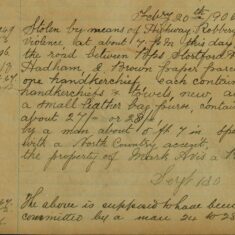 Feby 20th 1906
Stolen by means of Highway Robbery
Violence at about 7 P.M this day
the road between Bps Stortford
Hadham, a Brown Paper Parcel
one handkerchief each contain
handkerchiefs & towels, new, and
a small leather bag purse, contain
about 27/- or 28/-
by a man about 5 ft 7 in
with a North Country accent,
the property of Mark Avis a
Sergt
The above is supposed to have been
committed by a man 24 to 28